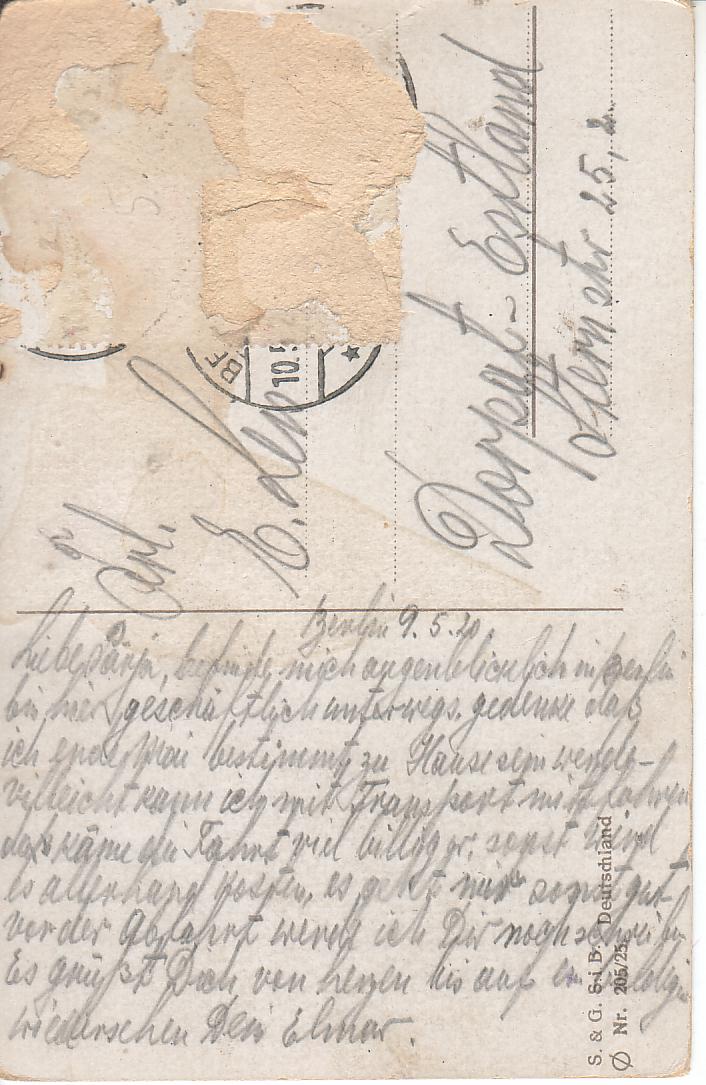 Frl.
E.
Dorpat - Estland
Sternstr 25, 2
BE
10.5
Berlin 9.5.20
Liebe befinde mich augenblicklich in Berlin
bin hier geschäftlich unterwegs. gedenke daß
ich ende Mai bestimmt zu Hause sein werde -
Villeicht kann ich mit Transport mit
dan käme die Fahrt viel billiger, sonst wird
es allerhand kosten, es geht mir sonst gut.
vor der Abfahrt werde ich Dir noch schreiben
Es grüßt Dich von herzen bis auf ein
wiedersehen Dein Elmar.
S. & G. S. i B. Deutschland
Nr. 205/25